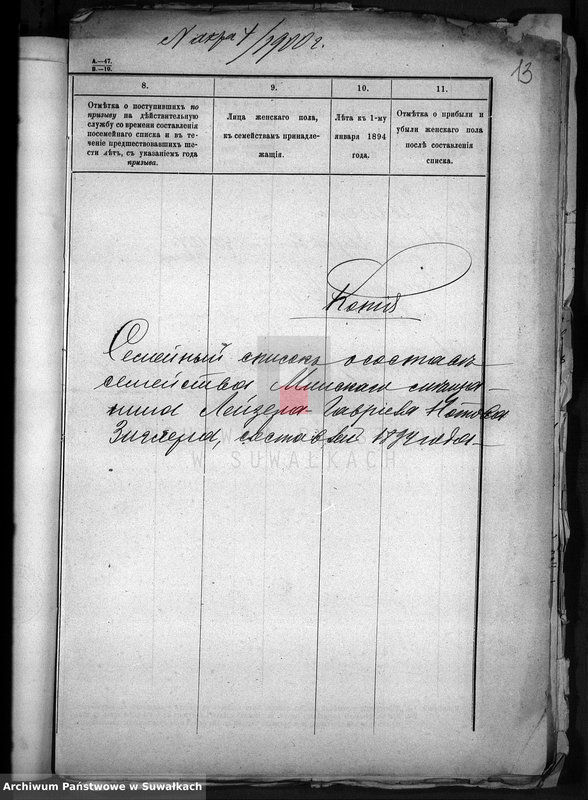 1900 г.
13
А.—47.
В.—10.
8.
9.
10.
11.
Отмѣтка о поступившихъ по
призыву на дѣйствительную
службу со времени составленія
посемейнаго списка и въ те-
ченіе предшествовавшихъ ше-
сти лѣтъ, съ указаніемъ года
призыва.
Лица женскаго пола,
къ семействамъ принадле-
жащія.
Лѣта къ 1-му
января 1894
года.
Отмѣтка о прибыли и
убыли женскаго пола
послѣ составленія
списка.
Копія
Семейный списокъ о составѣ
семейства Минскаго мѣща-
нина Лейзера Гавріева
Зиглера, 1894 года
W SUWAŁKACH
Archiwum Państwowe w Suwałkach